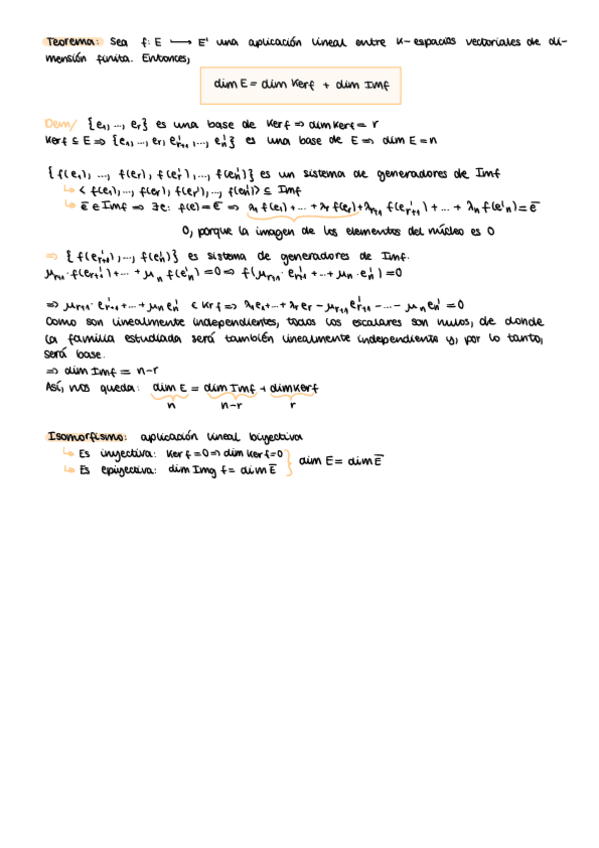 Teorema: Sea f: E ⟶ E' una aplicación lineal entre K-espacios vectoriales de di-
mensión finita. Entonces,
dim E = dim Kerf + dim Imf
Dem/ {e₁, ..., eᵣ} es una base de Kerf ⇒ dim Kerf = r
Kerf ⊆ E ⇒ {e₁, ..., eᵣ, e'ᵣ₊₁, ..., e'ₙ} es una base de E ⇒ dim E = n
{f(e₁), ..., f(eᵣ), f(e'ᵣ), ..., f(e'ₙ)} es un sistema de generadores de Imf
↳ < f(e₁), ..., f(eᵣ), f(eᵣ'), ..., f(e'ₙ)> ⊆ Imf
↳ e̅ ∈ Imf ⇒ ∃e: f(e) = e̅ ⇒ λ₁ f(e₁) + ... + λᵣ f(eᵣ) + λᵣ₊₁ f(e'ᵣ₊₁) + ... + λₙ f(e'ₙ) = e̅
0, porque la imagen de los elementos del núcleo es 0
⇒ {f(e'ᵣ₊₁), ..., f(e'ₙ)} es sistema de generadores de Imf.
μᵣ₊₁ · f(e'ᵣ₊₁) + ... + μₙ f(e'ₙ) = 0 ⇒ f(μᵣ₊₁ · e'ᵣ₊₁ + ... + μₙ · e'ₙ) = 0
⇒ μᵣ₊₁ · e'ᵣ₊₁ + ... + μₙ e'ₙ ∈ Krf ⇒ λ₁e₁ + ... + λᵣeᵣ − μᵣ₊₁e'ᵣ₊₁ − ... − μₙ e'ₙ = 0
Como son linealmente independientes, todos los escalares son nulos, de donde
la familia estudiada será también linealmente independiente y, por lo tanto,
será base.
⇒ dim Imf = n-r
Así, nos queda: dim E = dim Imf + dim Kerf
n n-r r
Isomorfismo: aplicación lineal biyectiva
↳ Es inyectiva: Kerf = 0 ⇒ dim Kerf = 0
↳ Es epiyectiva: dim Img f = dim E̅ } dim E = dim E̅